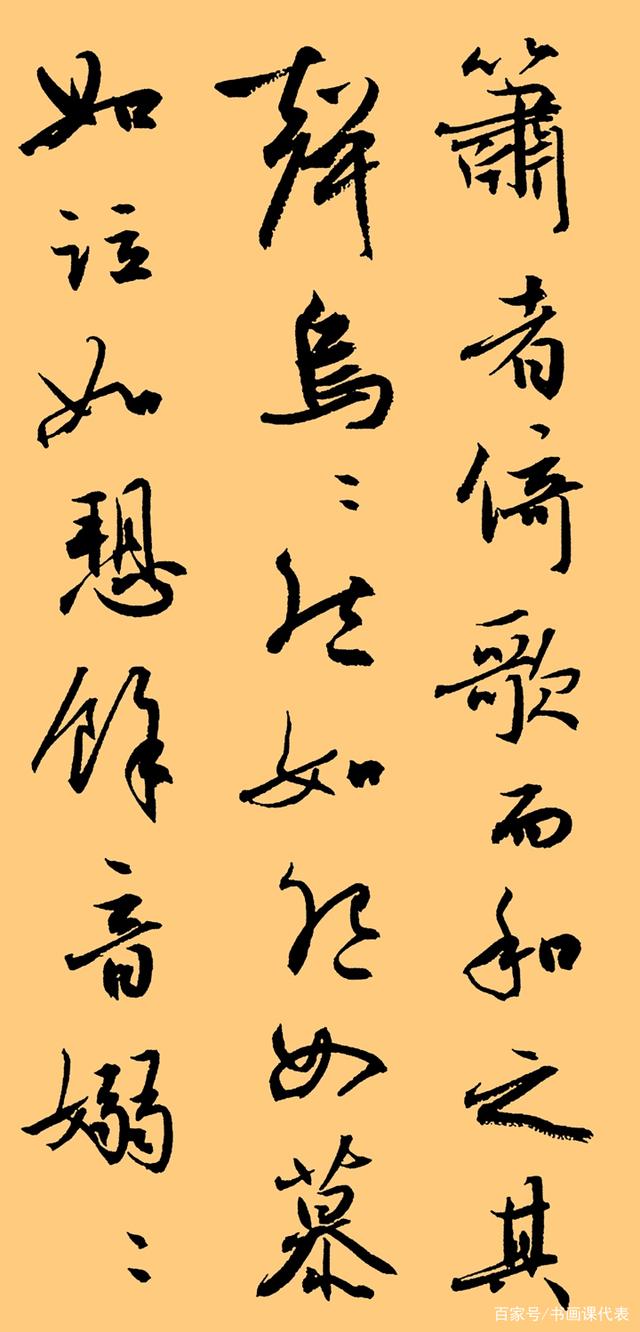 簫者倚歌而和之其
聲烏〻然如怨如慕
如泣如愬餘音嫋〻
百家号/书画课代表